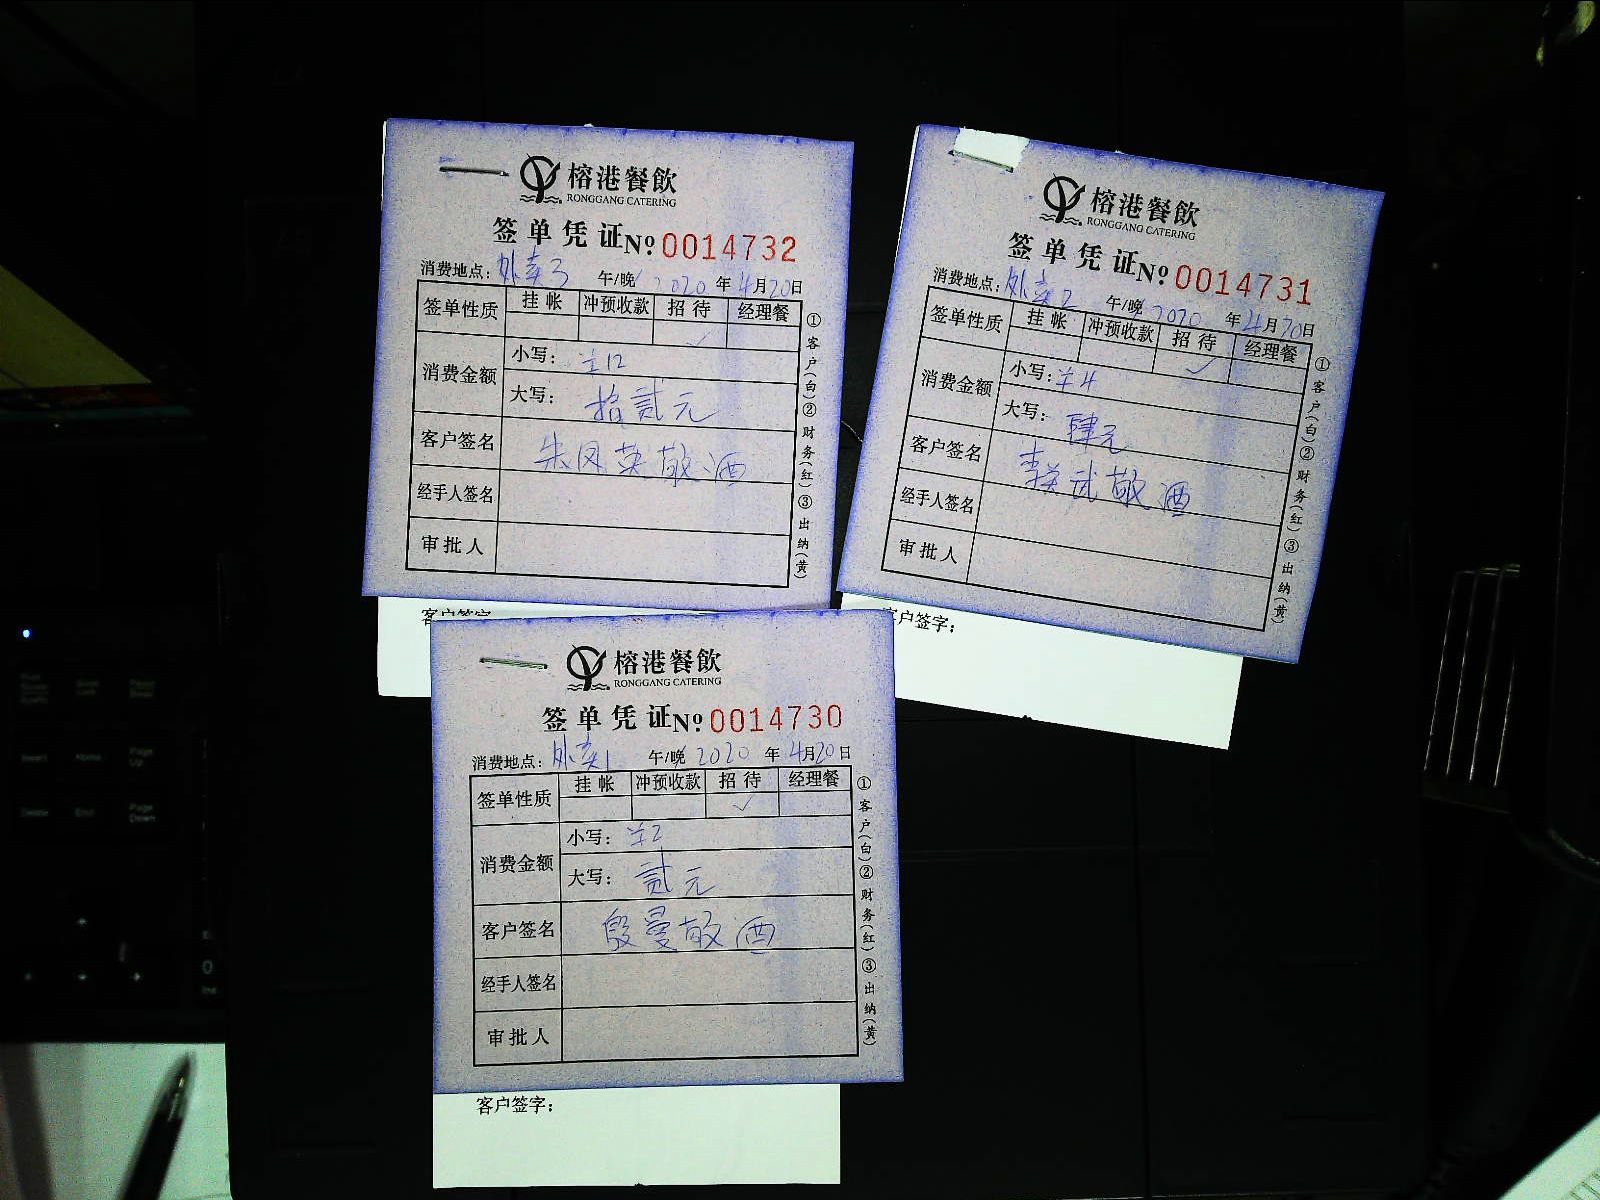 榕港餐飲
RONGGANG CATERING
签单凭证 No 0014732
消费地点：外卖3 午/晚 2020年4月20日
签单性质 挂帐 冲预收款 招待 经理餐
✓
消费金额 小写：¥12
大写：拾贰元
客户签名 朱凤英敬酒
经手人签名
审批人
①客户(白)②财务(红)③出纳(黄)
客户签字
榕港餐飲
RONGGANG CATERING
签单凭证 No 0014731
消费地点：外卖2 午/晚 2020年4月20日
签单性质 挂帐 冲预收款 招待 经理餐
✓
消费金额 小写：¥4
大写：肆元
客户签名 武敬酒
经手人签名
审批人
①客户(白)②财务(红)③出纳(黄)
客户签字：
榕港餐飲
RONGGANG CATERING
签单凭证 No 0014730
消费地点：外卖1 午/晚 2020年4月20日
签单性质 挂帐 冲预收款 招待 经理餐
✓
消费金额 小写：¥2
大写：贰元
客户签名 殷曼敬酒
经手人签名
审批人
①客户(白)②财务(红)③出纳(黄)
客户签字：
Insert Home Page Up
Delete End Page Down